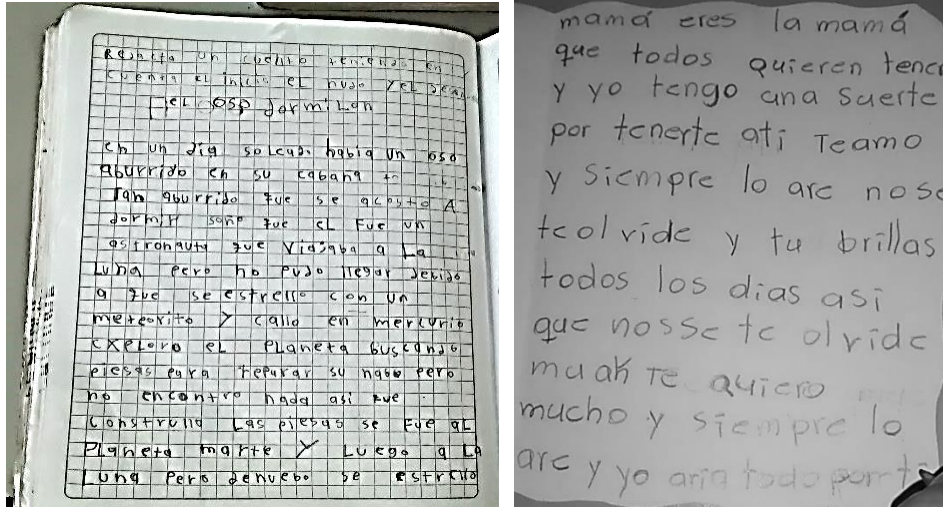 Redacta un cuento teniendo en
cuenta el inicio el nudo y el
el oso dormilon
en un dia soleado habia un oso
aburrido en su cabana
Tan aburrido que se acosto A
dormir soño que el Fue un
astronauta que viajaba a La
Luna pero no pudo llegar devido
a que se estrello con un
meteorito y callo en mercurio
exploro el planeta buscando
piesas para reparar su nabe pero
no encontro nada asi que
construllo Las piesas se Fue aL
planeta marte y Luego a La
Luna pero denuebo se estrello
mamá eres la mamá
que todos quieren tener
y yo tengo una suerte
por tenerte ati Teamo
y siempre lo are nose
teolvide y tu brillas
todos los dias asi
que nosse te olvide
muak Te quiero
mucho y siempre lo
are y yo aria todo por ti